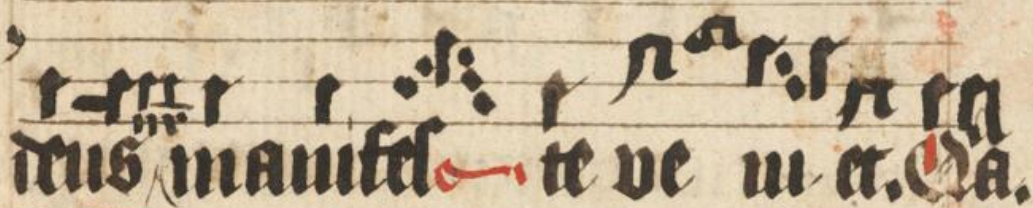 deus manifes te ve ni et. Na.